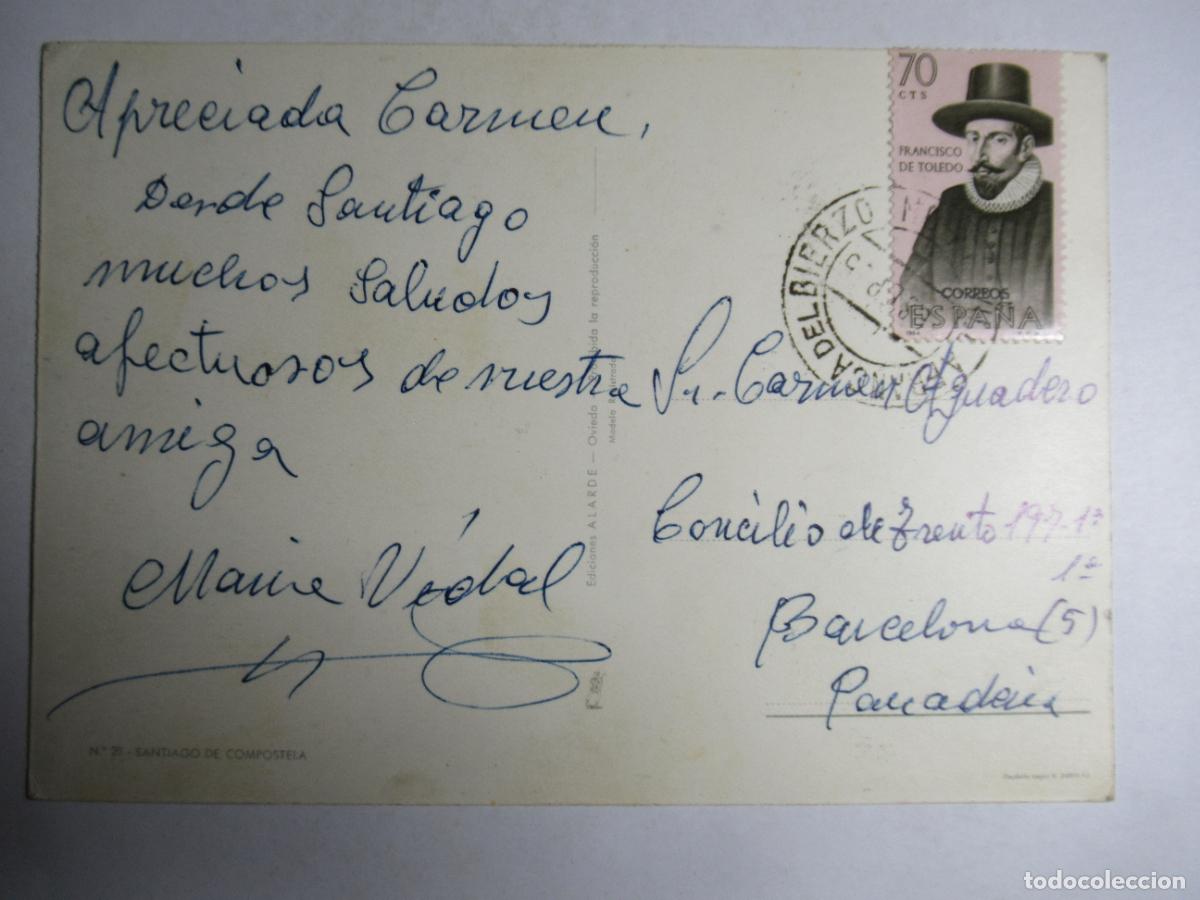 Apreciada Carmen,
Desde Santiago
muchos saludos
afectuosos de nuestra
amiga
Maria Vidal
Nº 20 - SANTIAGO DE COMPOSTELA
Ediciones ALARDE — Oviedo Prohibida la reproducción
70
CTS
FRANCISCO
DE TOLEDO
CORREOS
ESPAÑA
DEL BIERZO
Sr. Carmen Aguadero
Concilio de Trento 197-1º
1ª
Barcelona (5)
Panadería
todocoleccion